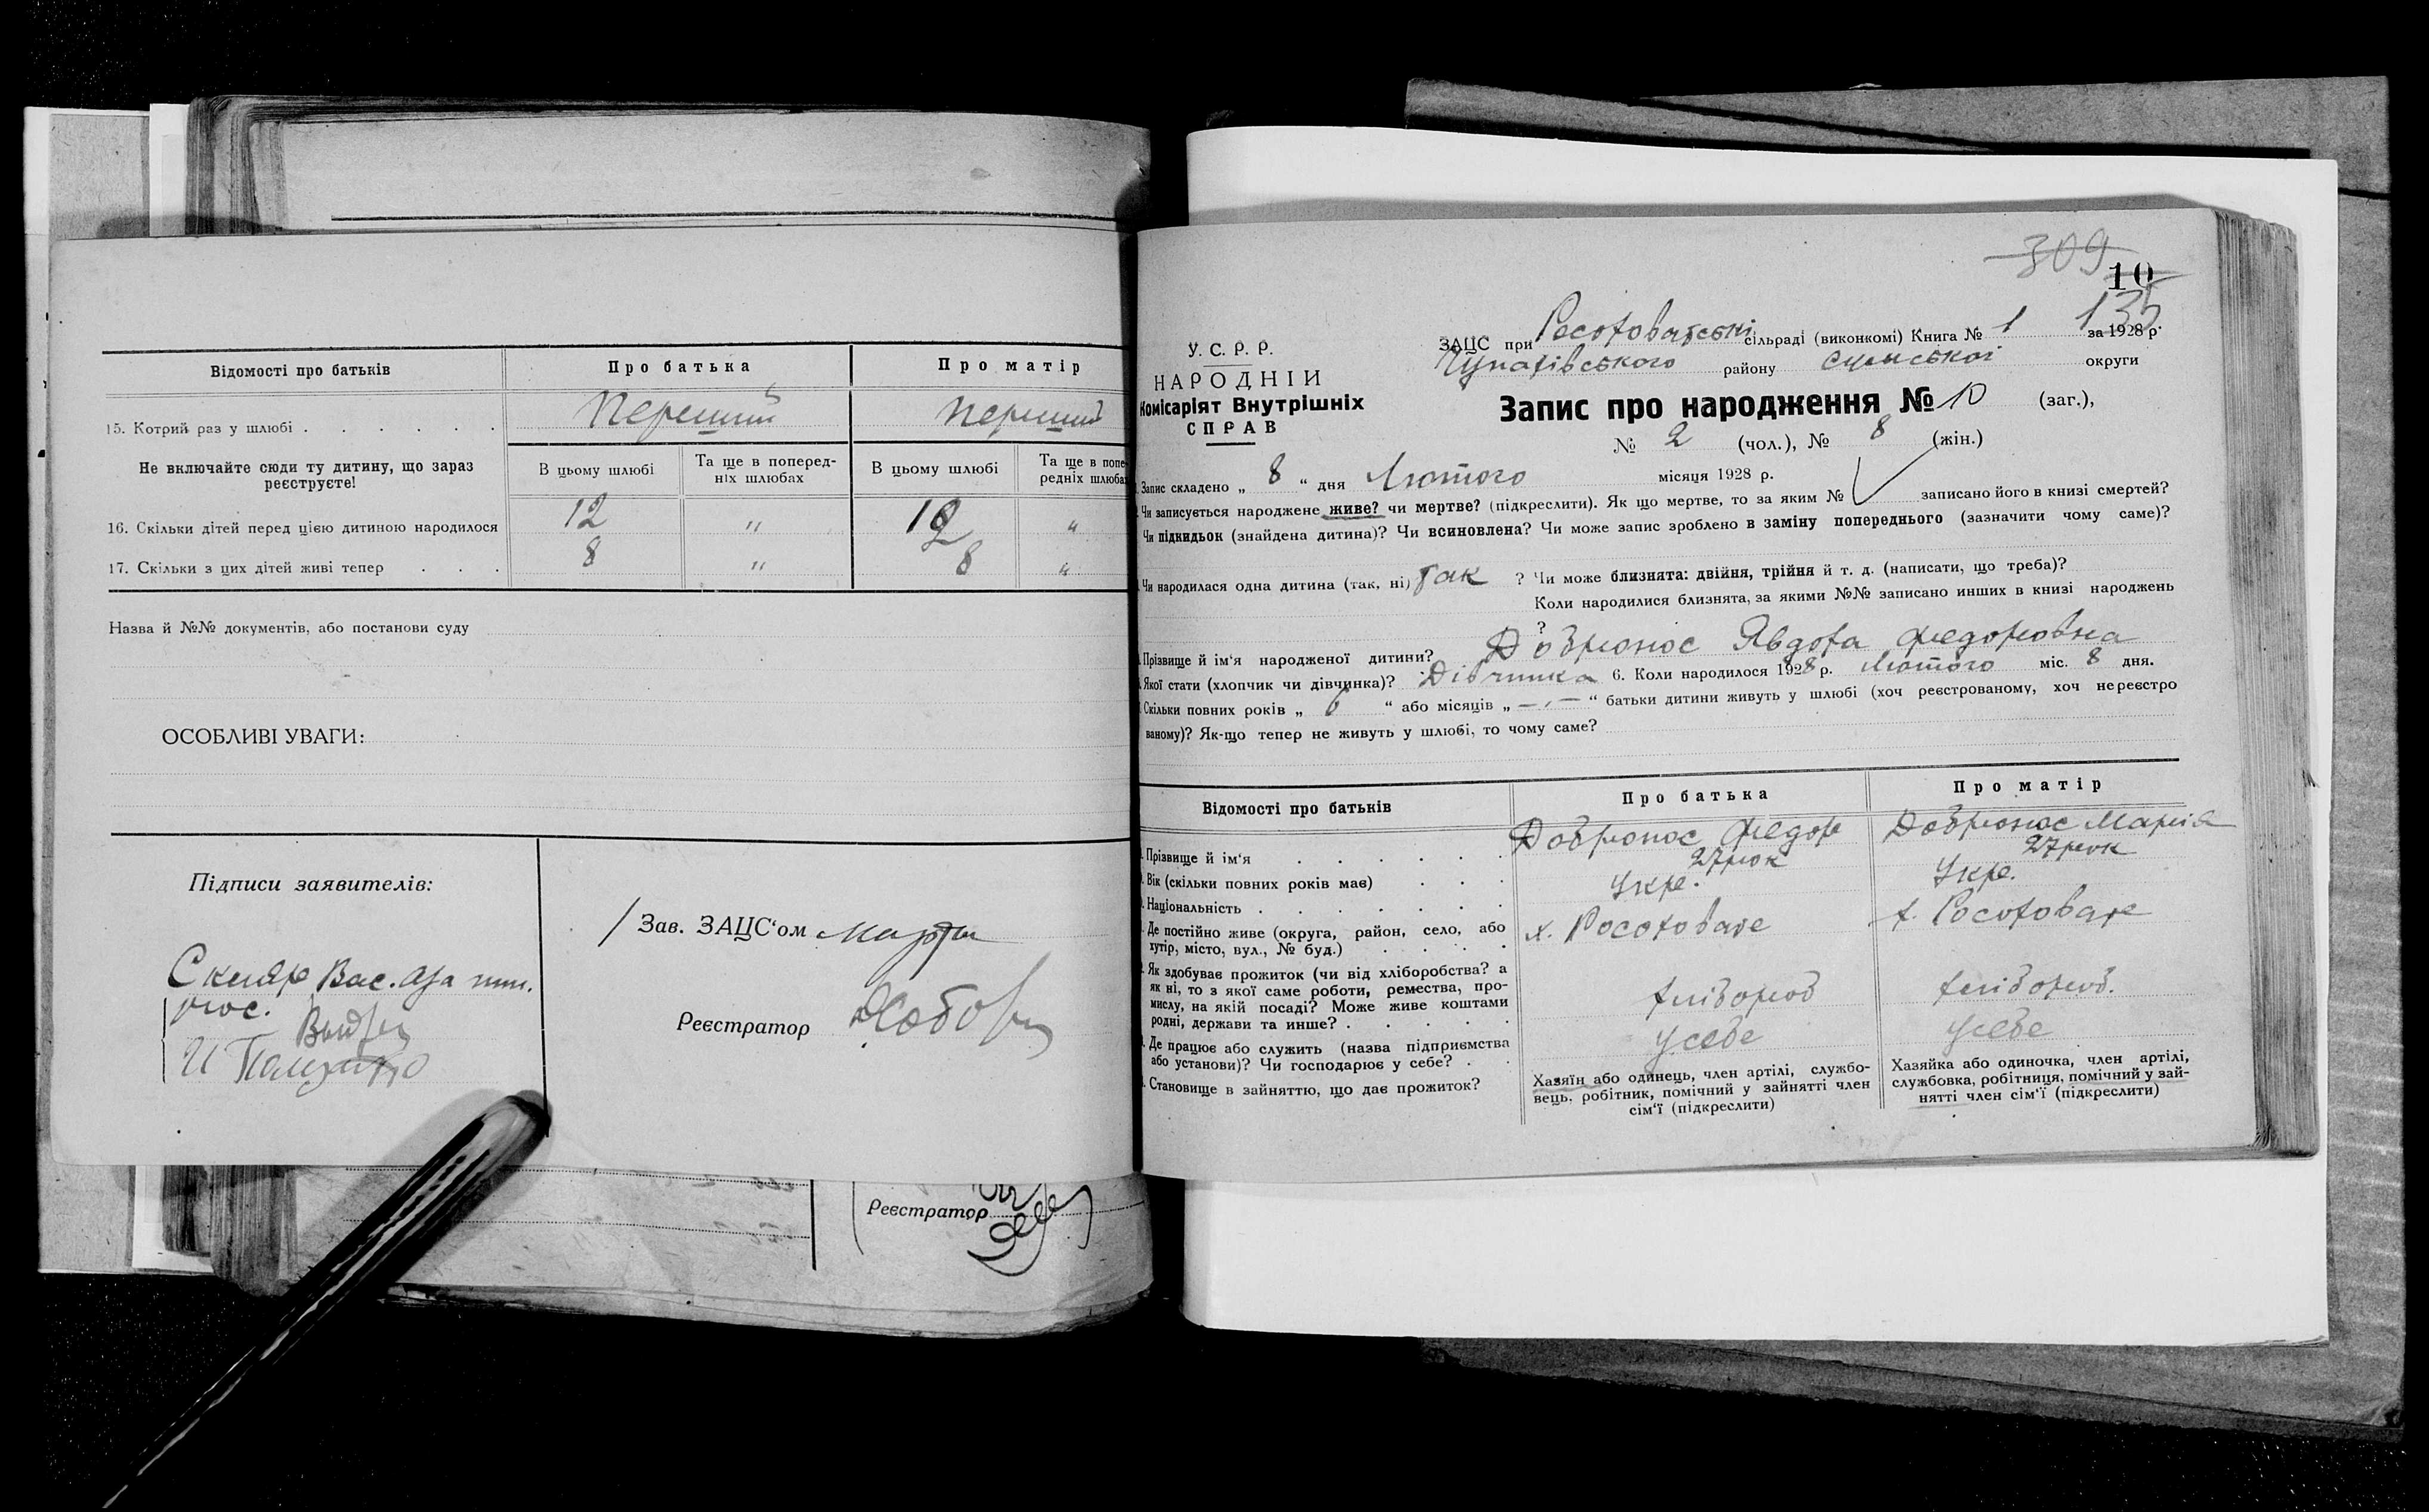 Відомості про батьків
Про батька
Про матір
15. Котрий раз у шлюбі . . . . . .
Перший
перший
Не включайте сюди ту дитину, що зараз реєструєте!
В цьому шлюбі
Та ще в поперед-
ніх шлюбах
В цьому шлюбі
Та ще в попе-
редніх шлюбах
16. Скільки дітей перед цією дитиною народилося
12
"
12
"
17. Скільки з цих дітей живі тепер . . .
8
"
8
"
Назва й №№ документів, або постанови суду
ОСОБЛИВІ УВАГИ:
Підписи заявителів:
Скляр Вас.
Зав. ЗАЦС'ом
Реєстратор
Реєстратор
309
10
135
У. С. Р. Р.
НАРОДНІЙ
Комісаріят Внутрішніх
СПРАВ
ЗАЦС при Росоховатскі сільраді (виконкомі) Книга № 1 за 1928 р.
Чупахівського району Сумської округи
Запис про народження № 10 (заг.),
№ 2 (чол.), № 8 (жін.)
Запис складено „ 8 “ дня Лютого місяця 1928 р.
Чи записується народжене живе? чи мертве? (підкреслити). Як що мертве, то за яким № записано його в книзі смертей?
Чи підкидьок (знайдена дитина)? Чи всиновлена? Чи може запис зроблено в заміну попереднього (зазначити чому саме)?
Чи народилася одна дитина (так, ні) Так ? Чи може близнята: двійня, трійня й т. д. (написати, що треба)?
Коли народилися близнята, за якими №№ записано инших в книзі народжень
?
Прізвище й ім'я народженої дитини? Добронос Явдоха Федоровна
Якої стати (хлопчик чи дівчинка)? Дівчинка 6. Коли народилося 1928 р. Лютого міс. 8 дня.
Скільки повних років „ 6 “ або місяців „ — „ — “ батьки дитини живуть у шлюбі (хоч реєстрованому, хоч нереєстро
ваному)? Як-що тепер не живуть у шлюбі, то чому саме?
Відомості про батьків
Про батька
Про матір
Прізвище й ім'я . . . . . .
Добронос Федор
Добронос Марія
Вік (скільки повних років має) . . .
27 рок
27 рок
Національність . . . . . . .
Укре.
Укре.
Де постійно живе (округа, район, село, або
хутір, місто, вул., № буд.) . . . .
х. Росоховате
х. Росоховате
Як здобуває прожиток (чи від хліборобства? а
як ні, то з якої саме роботи, ремества, про-
мислу, на якій посаді? Може живе коштами
родні, держави та инше? . . . . .
хлібороб
хлібороб.
Де працює або служить (назва підприємства
або установи)? Чи господарює у себе? . .
у себе
у себе
Становище в зайняттю, що дає прожиток?
Хазяїн або одинець, член артілі, службо-
вець, робітник, помічний у зайнятті член
сім'ї (підкреслити)
Хазяйка або одиночка, член артілі,
службовка, робітниця, помічний у зай-
нятті член сім'ї (підкреслити)